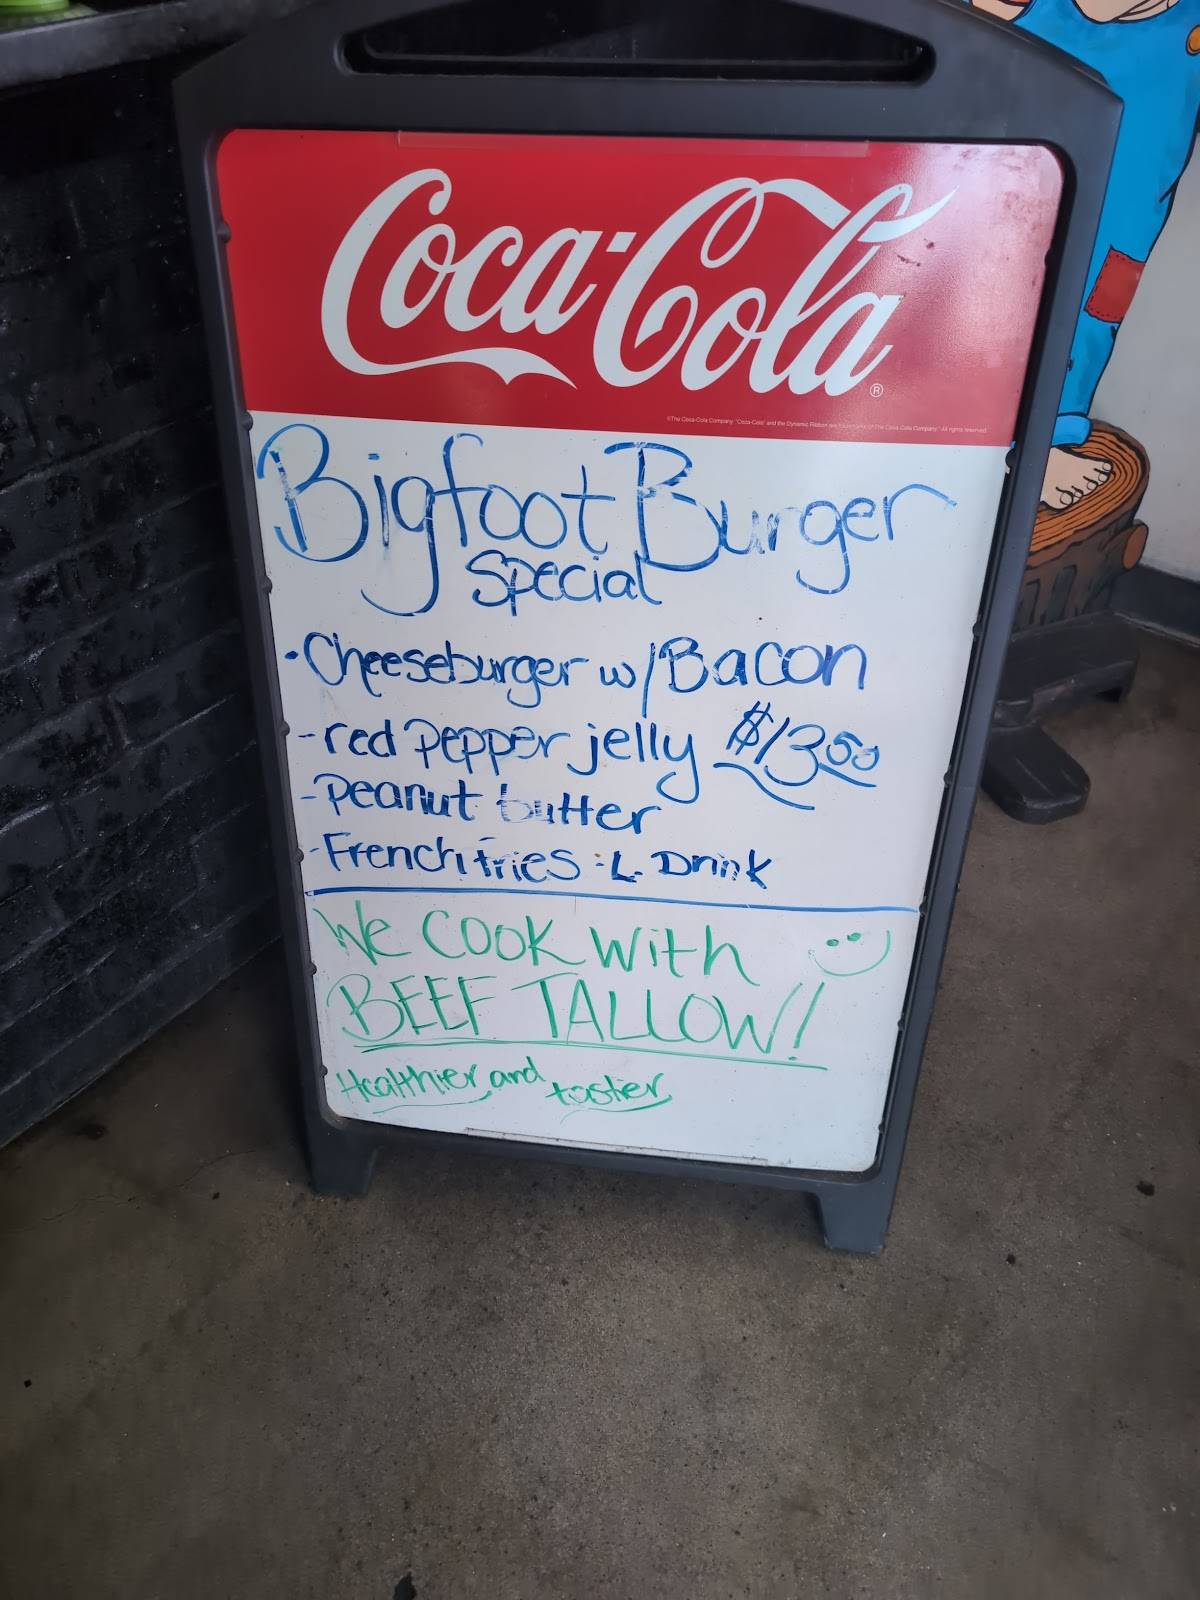 Coca-Cola®
©The Coca-Cola Company. "Coca-Cola" and the Dynamic Ribbon are trademarks of The Coca-Cola Company. All rights reserved.
Bigfoot Burger
Special
·Cheeseburger w/Bacon
-red Pepper jelly $13.50
-Peanut butter
-French fries ·L. Drink
We COOK With
BEEF TALLOW!
Healthier and tastier